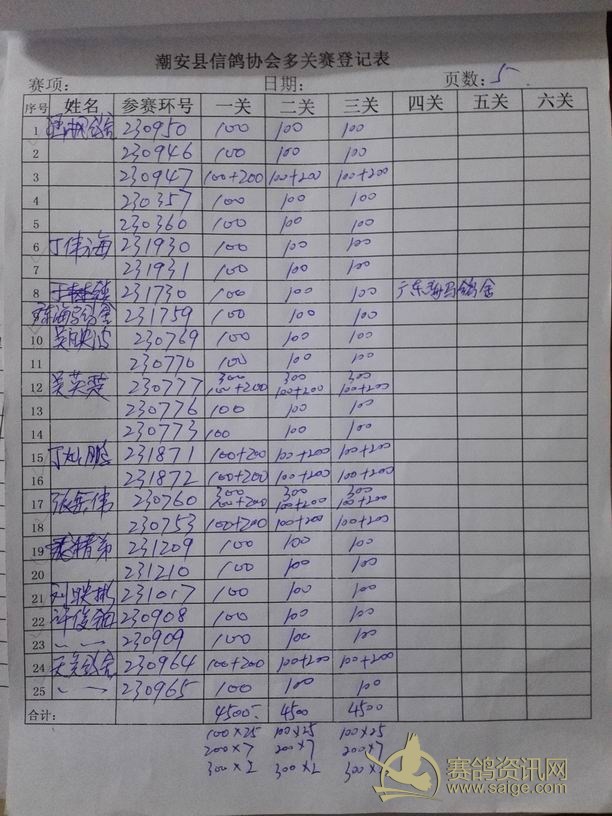 潮安县信鸽协会多关赛登记表
赛项: 日期: 页数: 5
序号 姓名 参赛环号 一关 二关 三关 四关 五关 六关
1 230950 100 100 100
2 230946 100 100 100
3 230947 100+200 100+200 100+200
4 230357 100 100 100
5 230360 100 100 100
6 丁伟海 231930 100 100 100
7 231931 100 100 100
8 231730 100 100 100 广东 鸽舍
231759 100 100 100
10 吴映 230769 100 100 100
11 230770 100 100 100
300 300 300
12 吴英 230777 100+200 100+200 100+200
13 230776 100 100 100
14 230773 100 100 100
15 丁 鹏 231871 100+200 100+200 100+200
16 231872 100+200 100+200 100+200
300 300 300
17 张 伟 230760 100+200 100+200 100+200
18 230753 100+200 100+200 100+200
19 231209 100 100 100
20 231210 100 100 100
21 刘映彬 231017 100 100 100
22 许俊 230908 100 100 100
23 〃 〃 230909 100 100 100
24 鸽舍 230964 100+200 100+200 100+200
25 〃 230965 100 100 100
合计: 4500 4500 4500
100×25 100×25 100×25
200×7 200×7 200×7
300×2 300×2 300×
赛鸽资讯网
www.saige.com